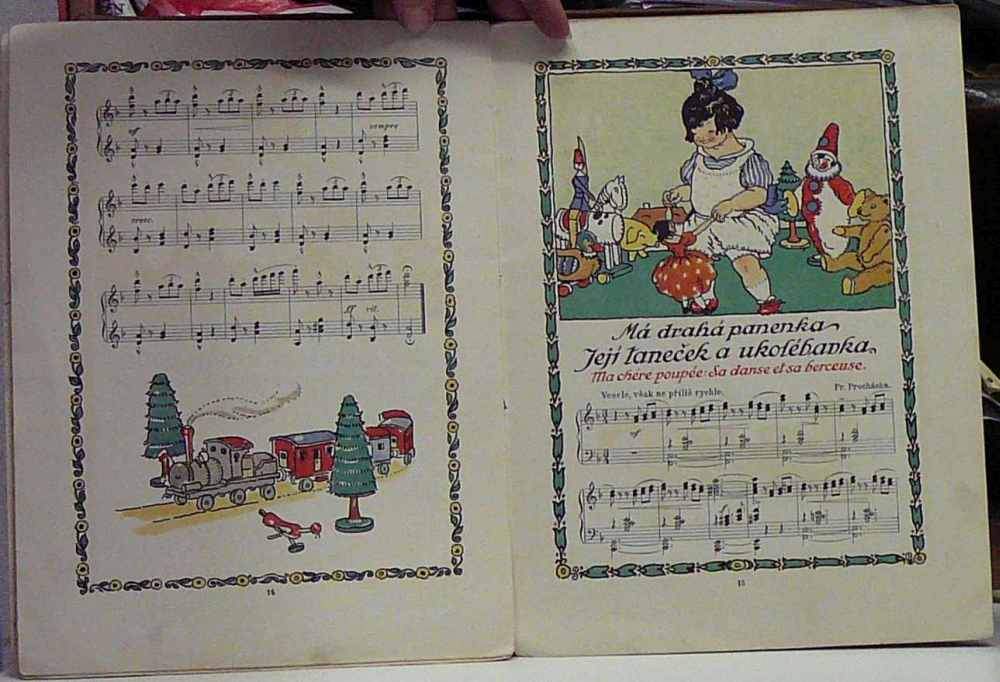 mf
sempre
cresc.
ff rit.
14
Má drahá panenka
Její taneček a ukolébavka.
Ma chére poupée: Sa danse et sa berceuse.
Vesele, však ne příliš rychle.
Fr. Procházka.
mf
15